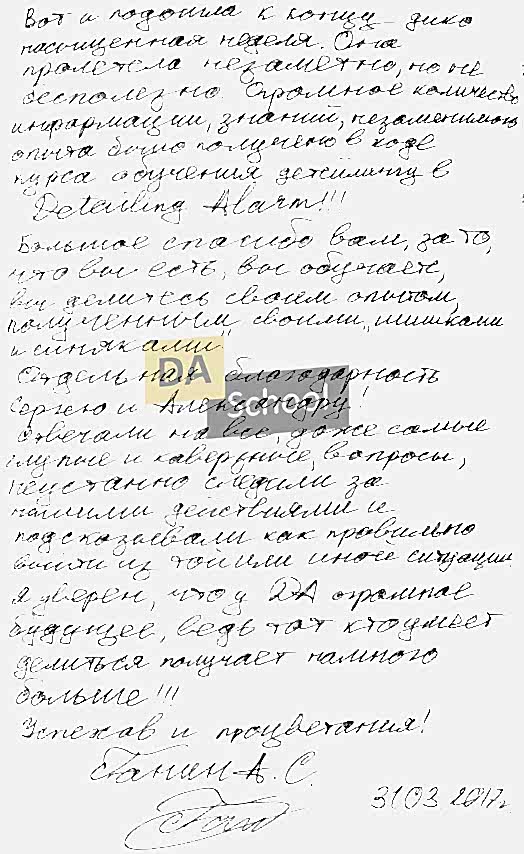 Вот и подошла к концу дико
насыщенная неделя. Она
пролетела незаметно, но не
бесполезно. Огромное количество
информации, знаний, незаменимого
опыта было получено в ходе
курса обучения детейлингу в
Detailing Alarm!!!
Большое спасибо вам, за то,
что вы есть, вы обучаете,
вы делитесь своим опытом,
полученным своими „шишками
и синяками".
Отдельная благодарность
Сергею и Александру!
Отвечали на все, даже самые
глупые и каверзные, вопросы,
неустанно следили за
нашими действиями и
подсказывали как правильно
выйти из той или иной ситуации.
Я уверен, что у DA огромное
будущее, ведь тот кто умеет
делиться получает намного
больше!!!
Успехов и процветания!
А. С.
31 03 2017г
DA
School